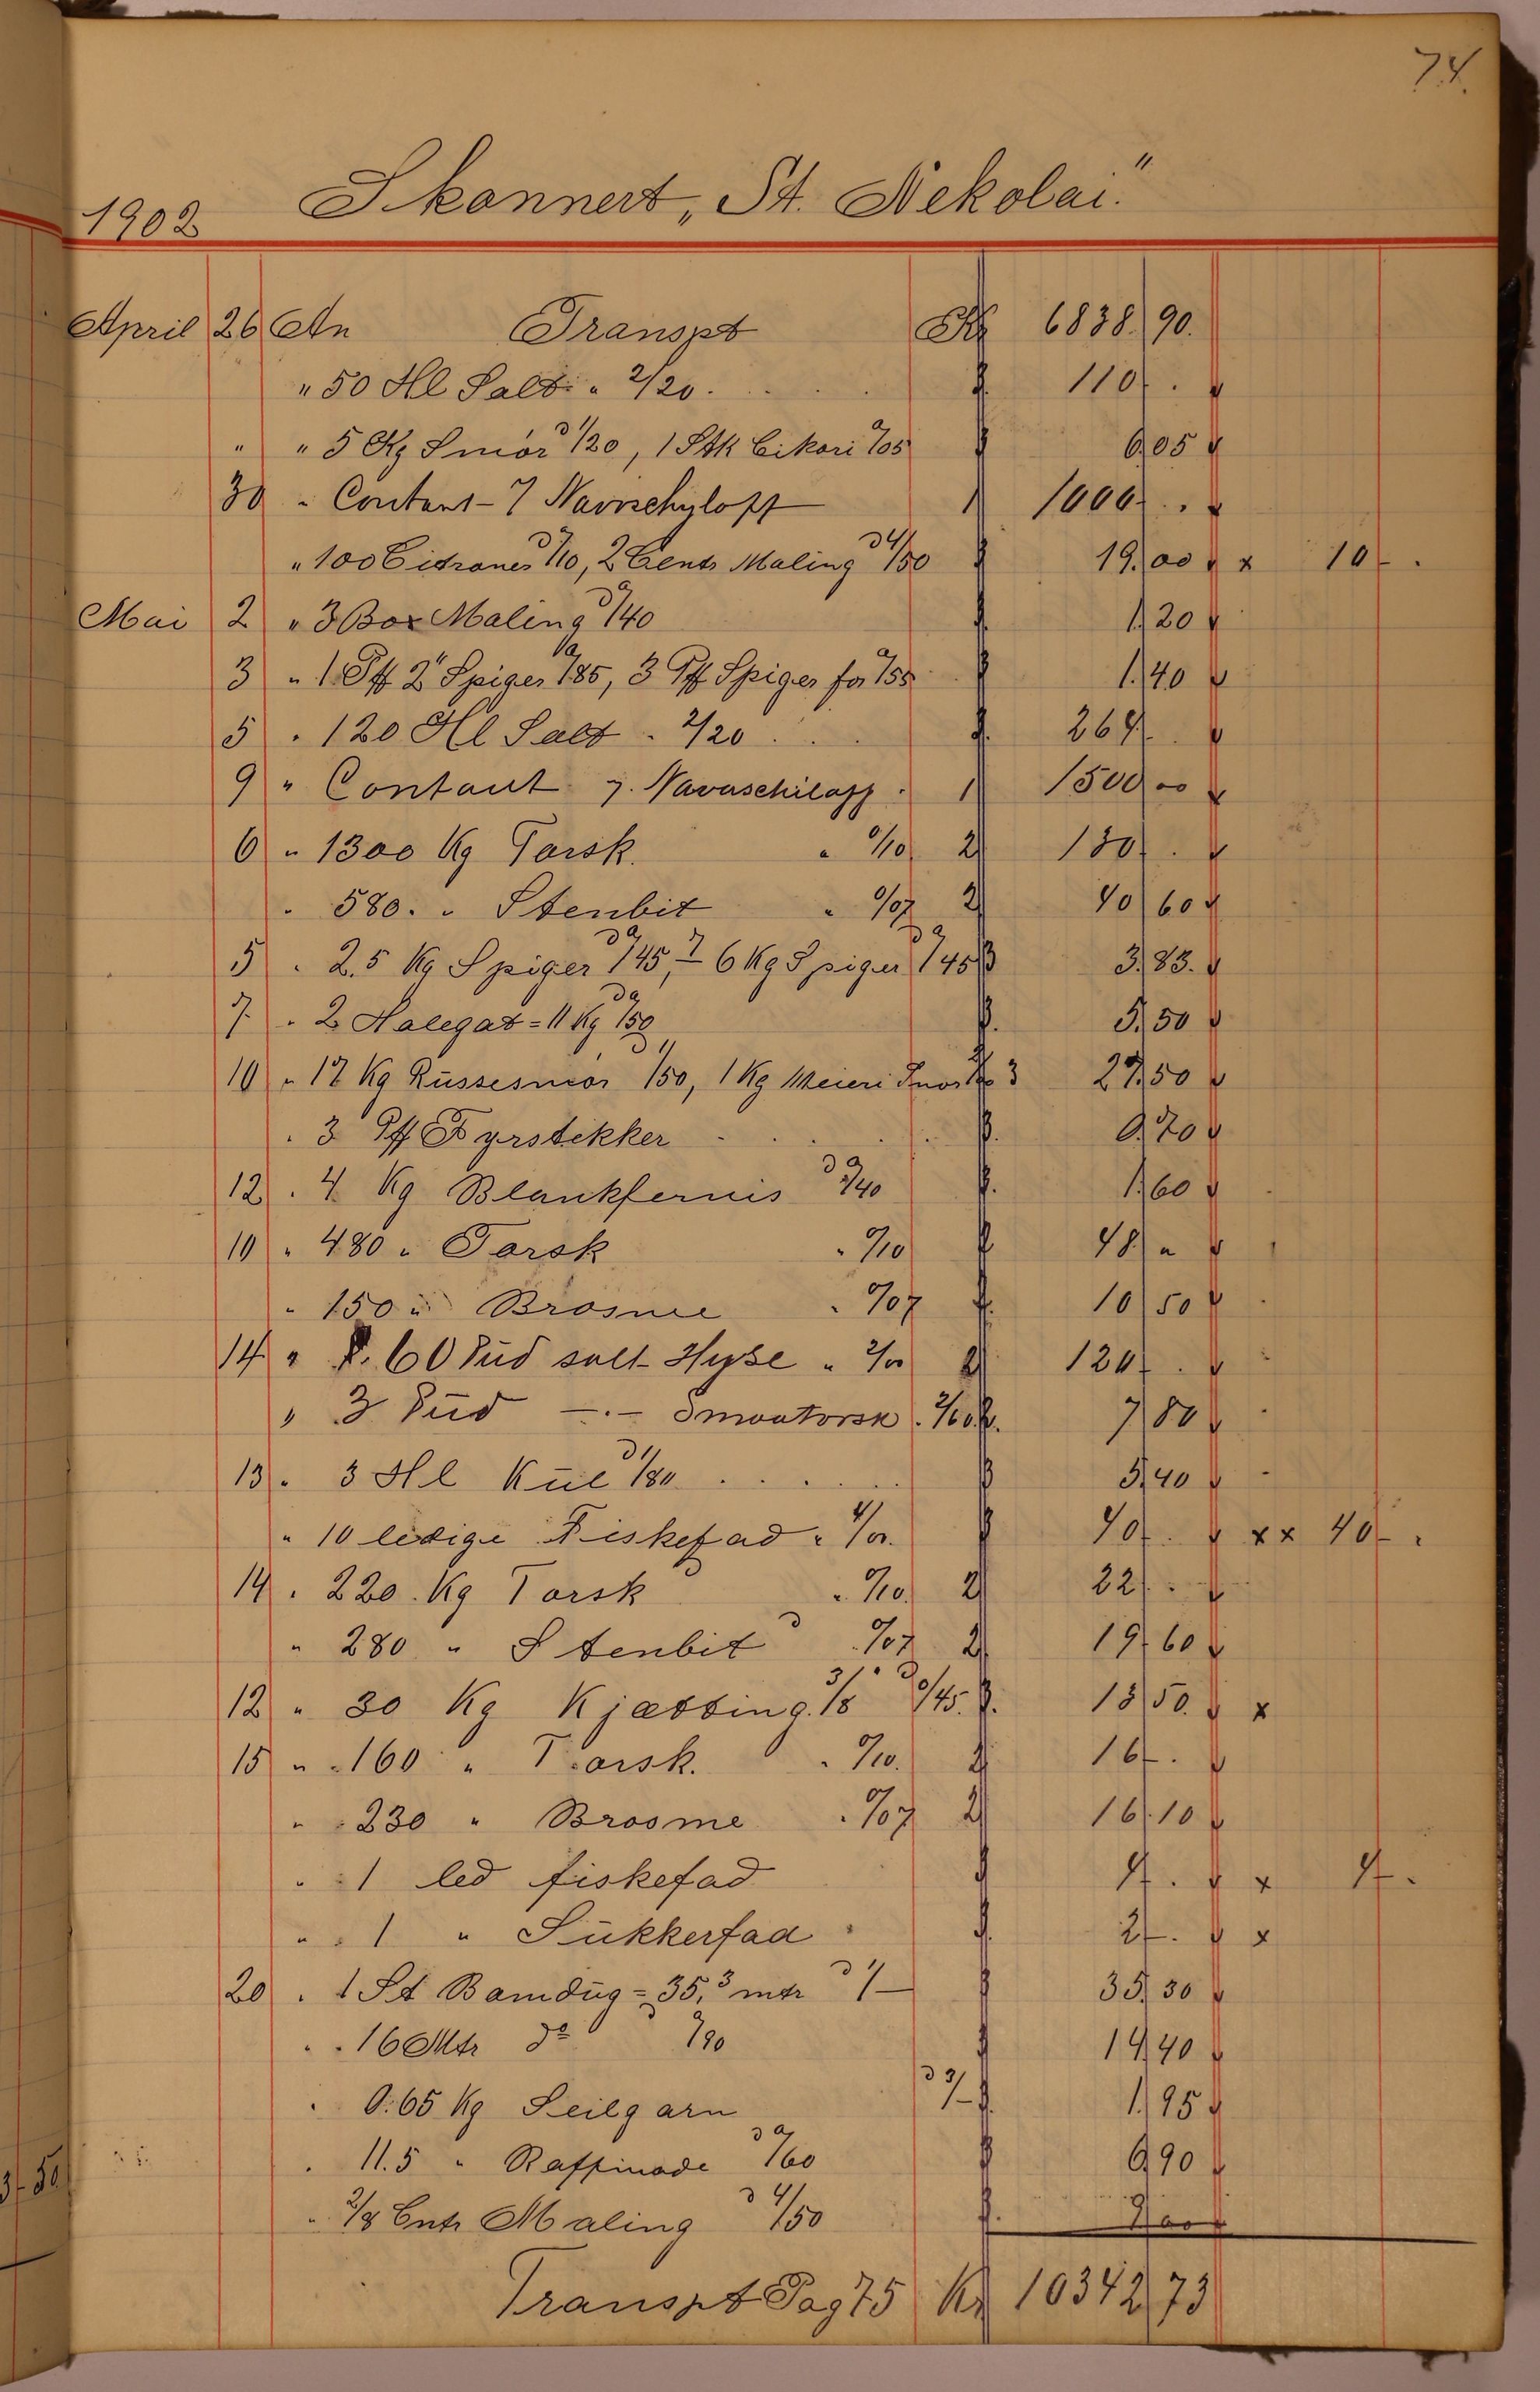 74.
1902 Skonnert „St. Nekolai."
April 26 An Transpt Kr 6838.90.
" 50 Hl Salt " 2/20. 110
" " 5 Kg Smör à 1/20, 1 Stk Cikori 0/05 6,05
30 " Contant - 1000
" 100 Citroner 0/10, 2 Cents Maling à 4/50 19.00 x 10
Mai 2 " 3 Box Maling à 0/40 1,20
3 " 1 Pk 2" Spiger 0/85, 3 Pk Spiger for 0/55 1.40
5 " 120 Hl Salt " 2/20 264
9 " Contant 1500 00
6 " 1300 Kg Torsk. " 0/10 2 130
" 580. " Stenbit " 0/07 2 40 60
5 " 2.5 Kg Spiger à 0/45, 6 Kg Spiger à 0/45 3.83.
7. " 2 Halegat = 11 Kg à 0/50 5,50
10 " 17 Kg Russesmör à 1/50, 1 Kg Meieri Smör 27,50
" 3 Pk Fyrstekker 0.70
12 " 4 Kg Blankfernis à 0/40 1,60
10 " 480 " Torsk " 0/10 48 "
" 150 " Brosme " 0/07 10 50
14 " 60 Pud salt Hyse " 2/00 2 120
" 3 Pud —.— Smaatorsk . 2/60 7 80
13 " 3 Hl Kul à 1/80 5,40
" 10 ledige Fiskefad " 4/00. 40 x x 40
14 " 220. Kg Torsk " 0/10. 2 22
" 280 " Stenbit 0/07 2 19 60
12 " 30 Kg Kjætting. 3/8" à 0/45. 13 50. x
15 " 160 " Torsk. " 0/10. 2 16
" 230 " Brosme . 0/07 2 16.10
" 1 led fiskefad 4 x 4
" 1 " Sukkerfad 2 x
20 " 1 St Bamdug = 35,3 mtr à 1/— 35,30
" 16 Mtr do 0/90 14,40
" 0.65 Kg Seilgarn à 3/— 1,95
" 11.5 " Raffinade à 0/60 6,90
" 2/8 Cntr Maling à 4/50 9,00
Transpt Pag 75 Kr 10342 73
3 50